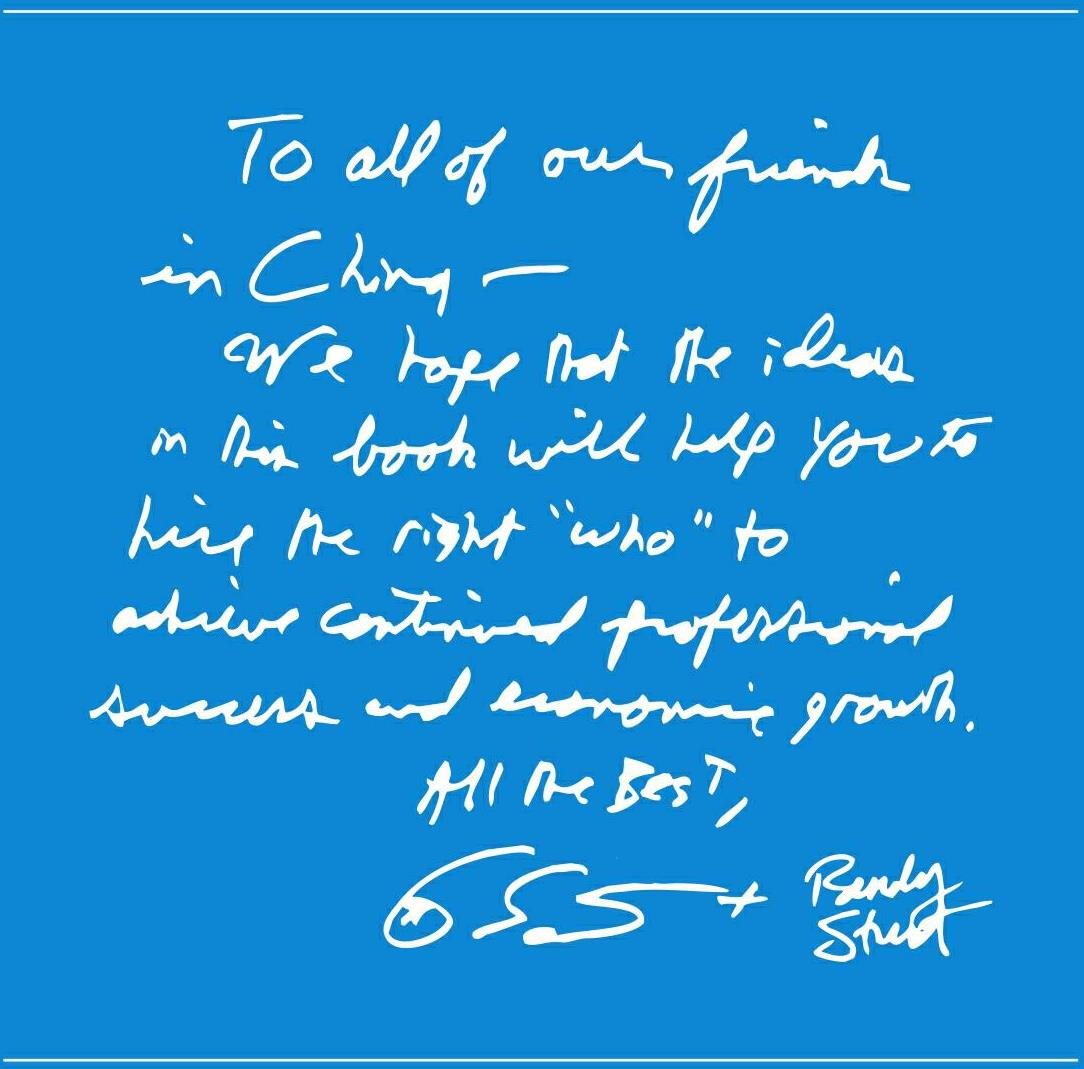 To all of our friends
in China —
We hope that the ideas
in this book will help you to
hire the right "who" to
achieve continued professional
success and economic growth.
All the Best,
+ Randy
Street